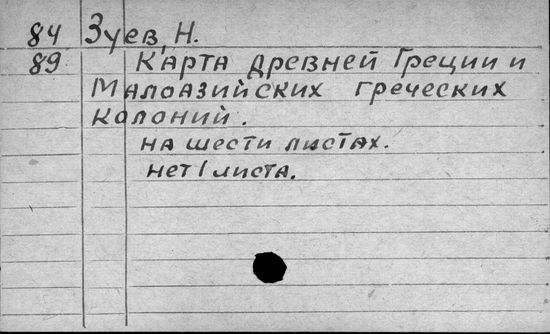 84 Зуев, Н.
89 Карта древней Греции и
Малоазийских греческих
колоний.
на шести листах.
нет 1 листа.